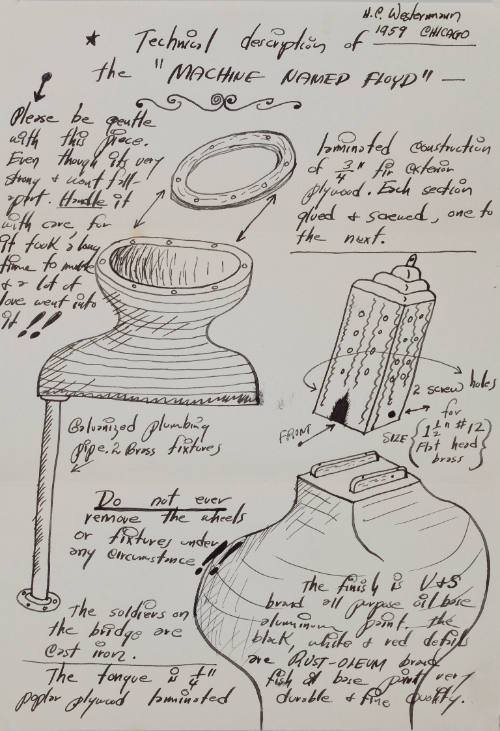 H.C. Westermann
1959 CHICAGO
★ Technical description of
the "MACHINE NAMED FLOYD" —
Please be gentle
with this piece.
Even though its very
strong & wont fall-
apart. Handle it
with care for
it took a long
time to make
& a lot of
love went into
it!!
laminated construction
of 3/4" fir exterior
plywood. Each section
glued & screwed, one to
the next.
2 screw holes
for
SIZE {1 1/2" #12
Flat head
brass}
FRONT
Galvanized plumbing
pipe. 2 Brass fixtures
Do not ever
remove the wheels
or fixtures under
any circumstance!!
The soldiers on
the bridge are
cast iron.
The tongue is 1/4"
poplar plywood laminated
The finish is V&S
brand all purpose oil base
aluminum paint. the
black, white & red details
are RUST-OLEUM brand
fish oil base paint very
durable & fine quality.